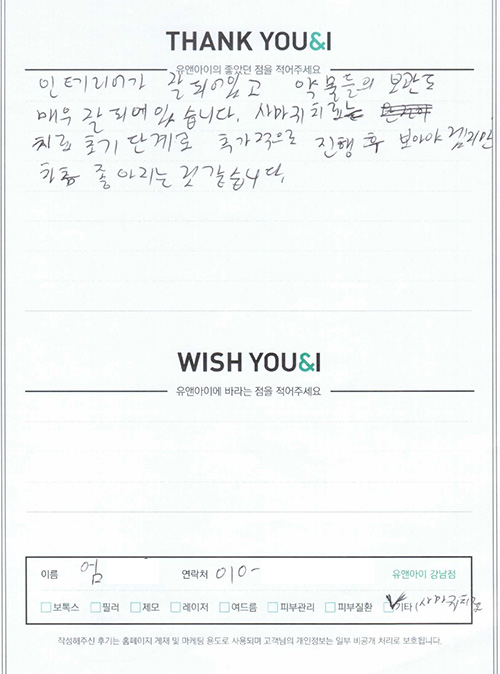 THANK YOU&I
유앤아이의 좋았던 점을 적어주세요
인테리어가 잘 되어있고 약물들의 보관도
매우 잘 되에있습니다. 사마귀 치료는
치료 초기 단계로 추가적으로 진행 후 보아야 겠지만
차츰 좋아지는 것 같습니다.
WISH YOU&I
유앤아이에 바라는 점을 적어주세요
이름 엄 연락처 010- 유앤아이 강남점
보톡스 필러 제모 레이저 여드름 피부관리 피부질환 기타 (사마귀치료
작성해주신 후기는 홈페이지 게재 및 마케팅 용도로 사용되며 고객님의 개인정보는 일부 비공개 처리로 보호됩니다.